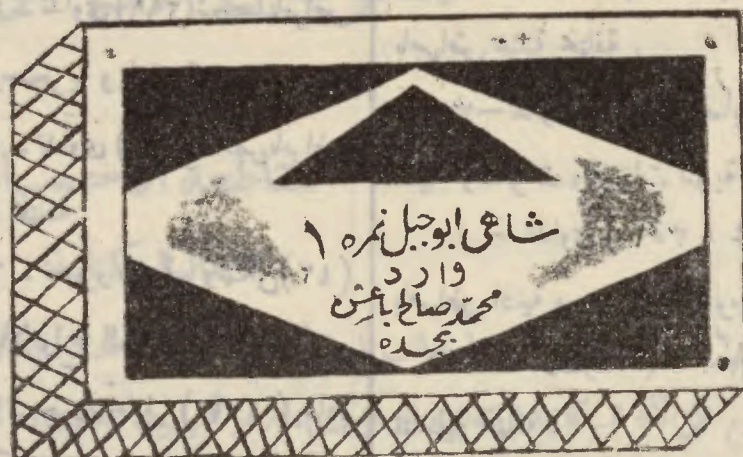 شاهى ابو جبل نمره ١
وارد
محمد صالح باعشن
بجده